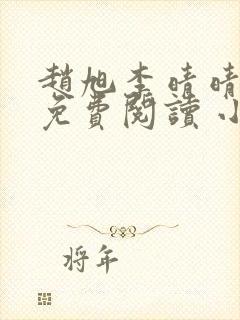 趙旭李晴晴
免費閱讀小
将年